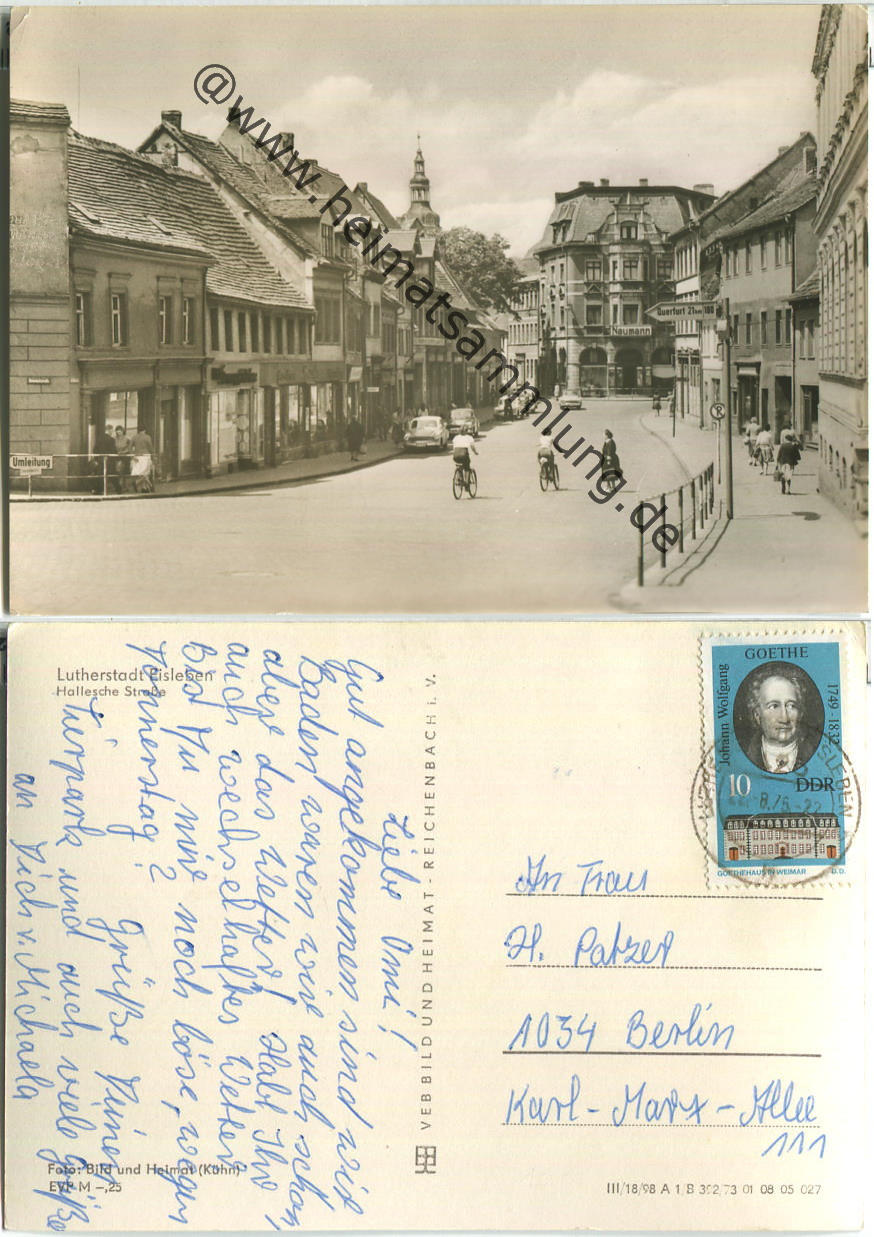 @www.heimatsammlung.de
Querfurt 21km 180
Naumann
Umleitung
Lutherstadt Eisleben
Hallesche Straße
Liebe Omi!
Gut angekommen sind wir
Baden waren wir auch schon,
aber das Wetter! Habt Ihr
auch wechselhaftes Wetter
Bist Du mir noch böse, wegen
Donnerstag?
Grüße Deinen
Tierpark und auch viele Grüße
an Dich v. Michaela
Foto: Bild und Heimat (Kühn)
EVP M –,25
VEB BILD UND HEIMAT · REICHENBACH i. V.
GOETHE
Johann Wolfgang
1749 - 1832
10
DDR
GOETHEHAUS IN WEIMAR
D.D.
EISLEBEN
An Frau
H. Patzer
1034 Berlin
Karl - Marx - Allee
111
III/18/98 A 1/B 392/73 01 08 05 027